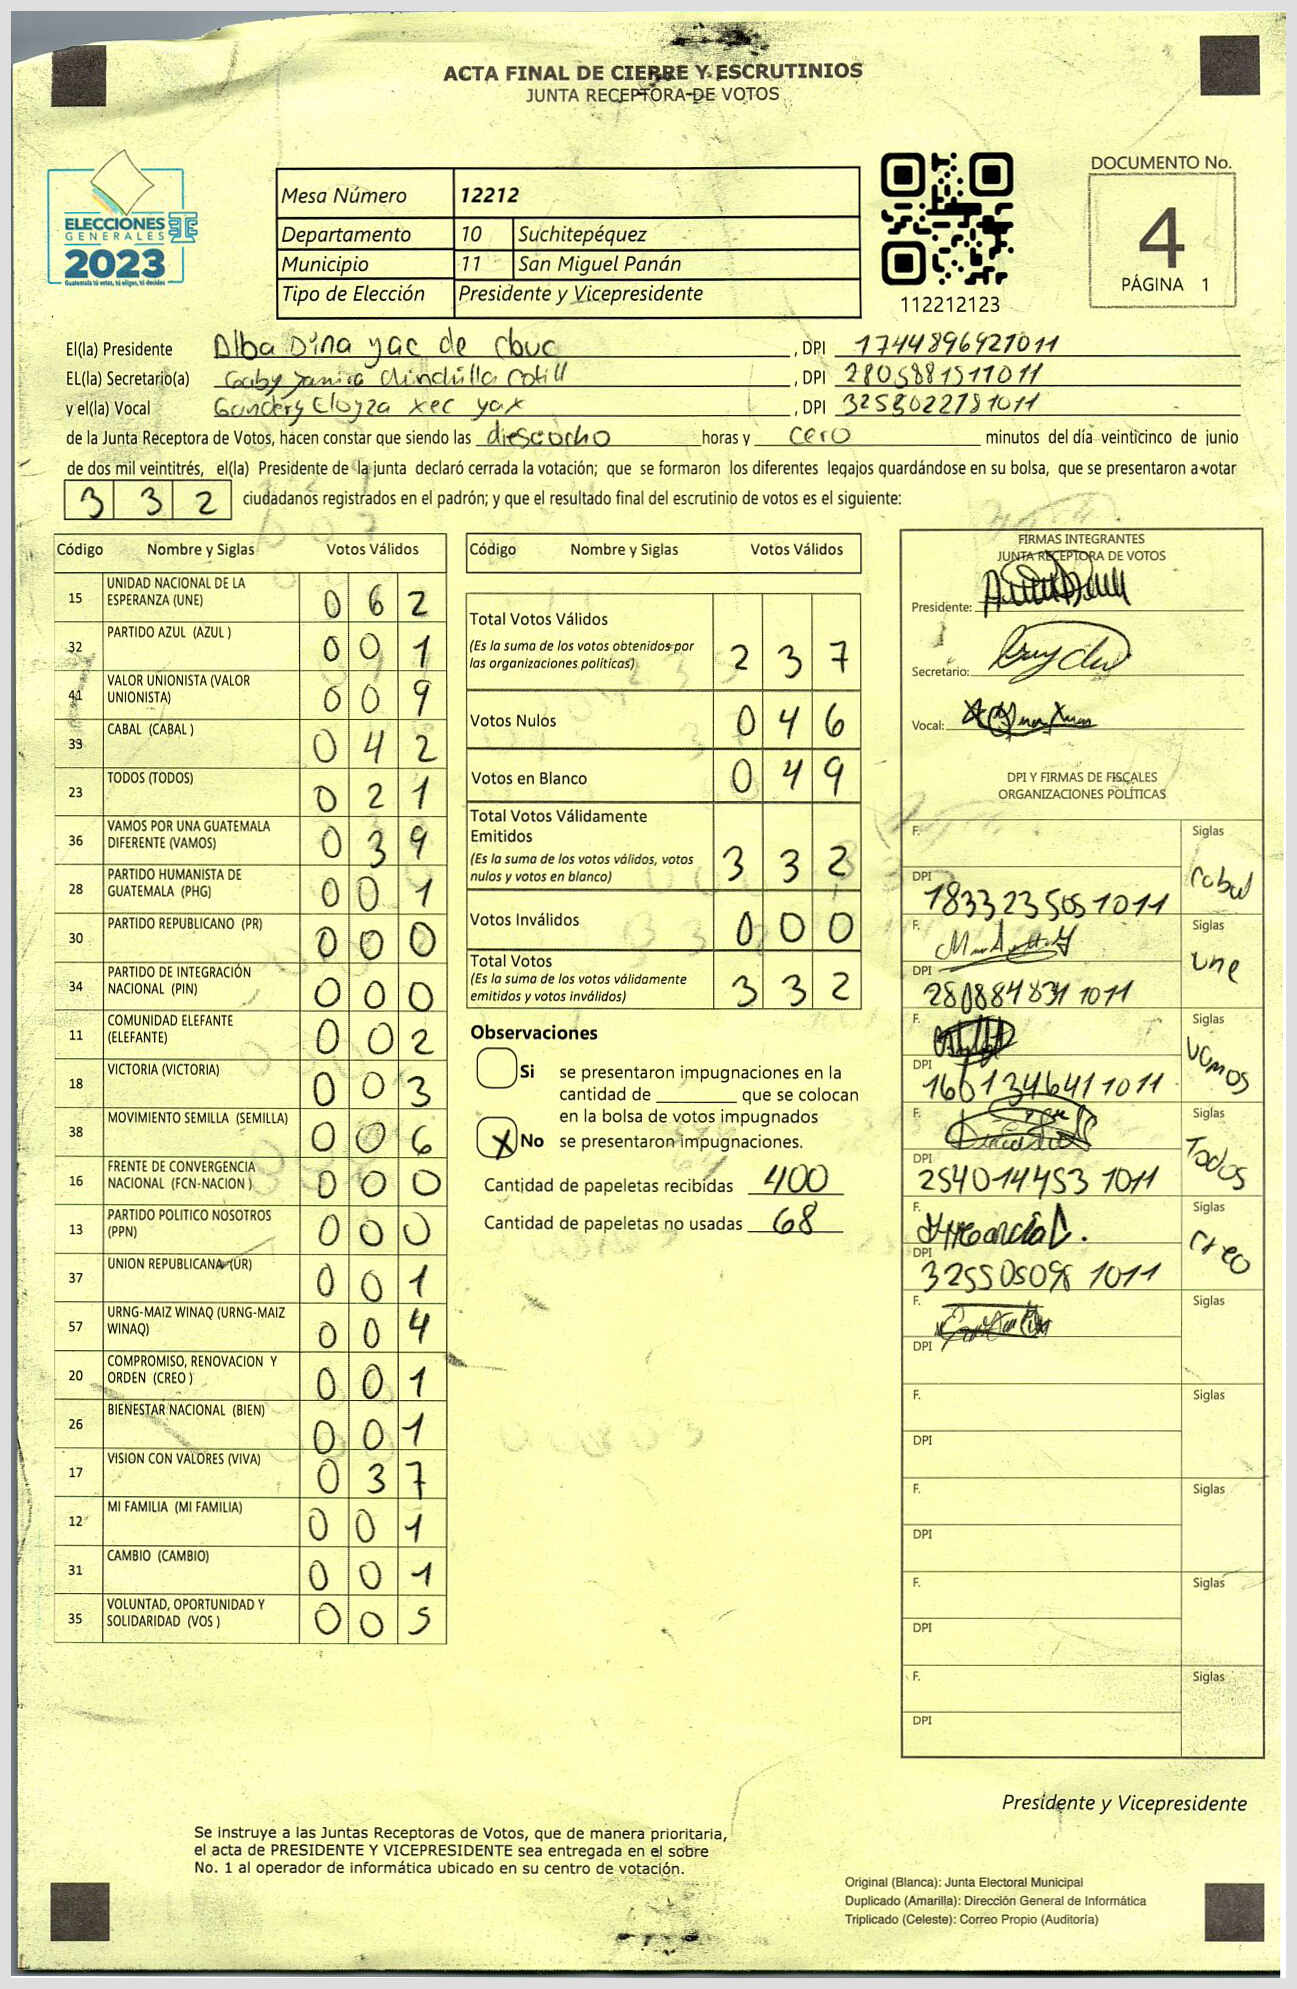 ACTA FINAL DE CIERRE Y ESCRUTINIOS
JUNTA RECEPTORA DE VOTOS
ELECCIONES
GENERALES
2023
Guatemala tú votas, tú eliges, tú decides
Mesa Número 12212
Departamento 10 Suchitepéquez
Municipio 11 San Miguel Panán
Tipo de Elección Presidente y Vicepresidente
112212123
DOCUMENTO No.
4
PÁGINA 1
El(la) Presidente Alba Dina yac de , DPI 1744896921011
EL(la) Secretario(a) Gaby , DPI 2805881511011
y el(la) Vocal xec yax , DPI 3253022781011
de la Junta Receptora de Votos, hacen constar que siendo las diesciocho horas y cero minutos del día veinticinco de junio
de dos mil veintitrés, el(la) Presidente de la junta declaró cerrada la votación; que se formaron los diferentes legajos guardándose en su bolsa, que se presentaron a votar
332 ciudadanos registrados en el padrón; y que el resultado final del escrutinio de votos es el siguiente:
Código Nombre y Siglas Votos Válidos
15 UNIDAD NACIONAL DE LA ESPERANZA (UNE) 062
32 PARTIDO AZUL (AZUL ) 001
41 VALOR UNIONISTA (VALOR UNIONISTA) 009
33 CABAL (CABAL ) 042
23 TODOS (TODOS) 021
36 VAMOS POR UNA GUATEMALA DIFERENTE (VAMOS) 039
28 PARTIDO HUMANISTA DE GUATEMALA (PHG) 001
30 PARTIDO REPUBLICANO (PR) 000
34 PARTIDO DE INTEGRACIÓN NACIONAL (PIN) 000
11 COMUNIDAD ELEFANTE (ELEFANTE) 002
18 VICTORIA (VICTORIA) 003
38 MOVIMIENTO SEMILLA (SEMILLA) 006
16 FRENTE DE CONVERGENCIA NACIONAL (FCN-NACION ) 000
13 PARTIDO POLITICO NOSOTROS (PPN) 000
37 UNION REPUBLICANA (UR) 001
57 URNG-MAIZ WINAQ (URNG-MAIZ WINAQ) 004
20 COMPROMISO, RENOVACION Y ORDEN (CREO ) 001
26 BIENESTAR NACIONAL (BIEN) 001
17 VISION CON VALORES (VIVA) 037
12 MI FAMILIA (MI FAMILIA) 001
31 CAMBIO (CAMBIO) 001
35 VOLUNTAD, OPORTUNIDAD Y SOLIDARIDAD (VOS ) 005
Código Nombre y Siglas Votos Válidos
Total Votos Válidos 237
(Es la suma de los votos obtenidos por
las organizaciones políticas)
Votos Nulos 046
Votos en Blanco 049
Total Votos Válidamente
Emitidos 332
(Es la suma de los votos válidos, votos
nulos y votos en blanco)
Votos Inválidos 000
Total Votos 332
(Es la suma de los votos válidamente
emitidos y votos inválidos)
Observaciones
Si se presentaron impugnaciones en la
cantidad de ________ que se colocan
en la bolsa de votos impugnados
X No se presentaron impugnaciones.
Cantidad de papeletas recibidas 400
Cantidad de papeletas no usadas 68
FIRMAS INTEGRANTES
JUNTA RECEPTORA DE VOTOS
Presidente:
Secretario:
Vocal:
DPI Y FIRMAS DE FISCALES
ORGANIZACIONES POLÍTICAS
F. Siglas cabal
DPI 1833235051011
F. Siglas une
DPI 2808848311011
F. Siglas vamos
DPI 1601346411011
F. Siglas Todos
DPI 2540144531011
F. Siglas creo
DPI 3255050981011
F. Siglas
DPI
F. Siglas
DPI
F. Siglas
DPI
F. Siglas
DPI
F. Siglas
DPI
Presidente y Vicepresidente
Se instruye a las Juntas Receptoras de Votos, que de manera prioritaria,
el acta de PRESIDENTE Y VICEPRESIDENTE sea entregada en el sobre
No. 1 al operador de informática ubicado en su centro de votación.
Original (Blanca): Junta Electoral Municipal
Duplicado (Amarilla): Dirección General de Informática
Triplicado (Celeste): Correo Propio (Auditoría)